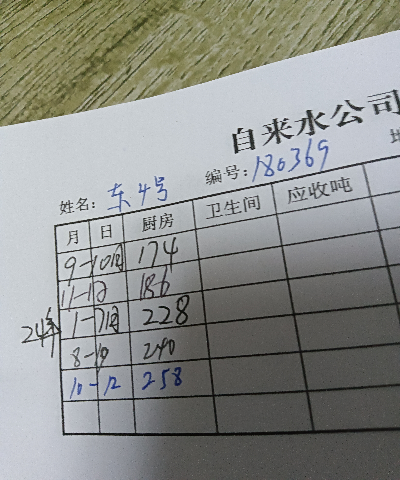 自来水公司
姓名: 东4号 编号: 180369
月 日 厨房 卫生间 应收吨
9-10月 174
11-12 186
24年 1-7月 228
8-10 240
10-12 258